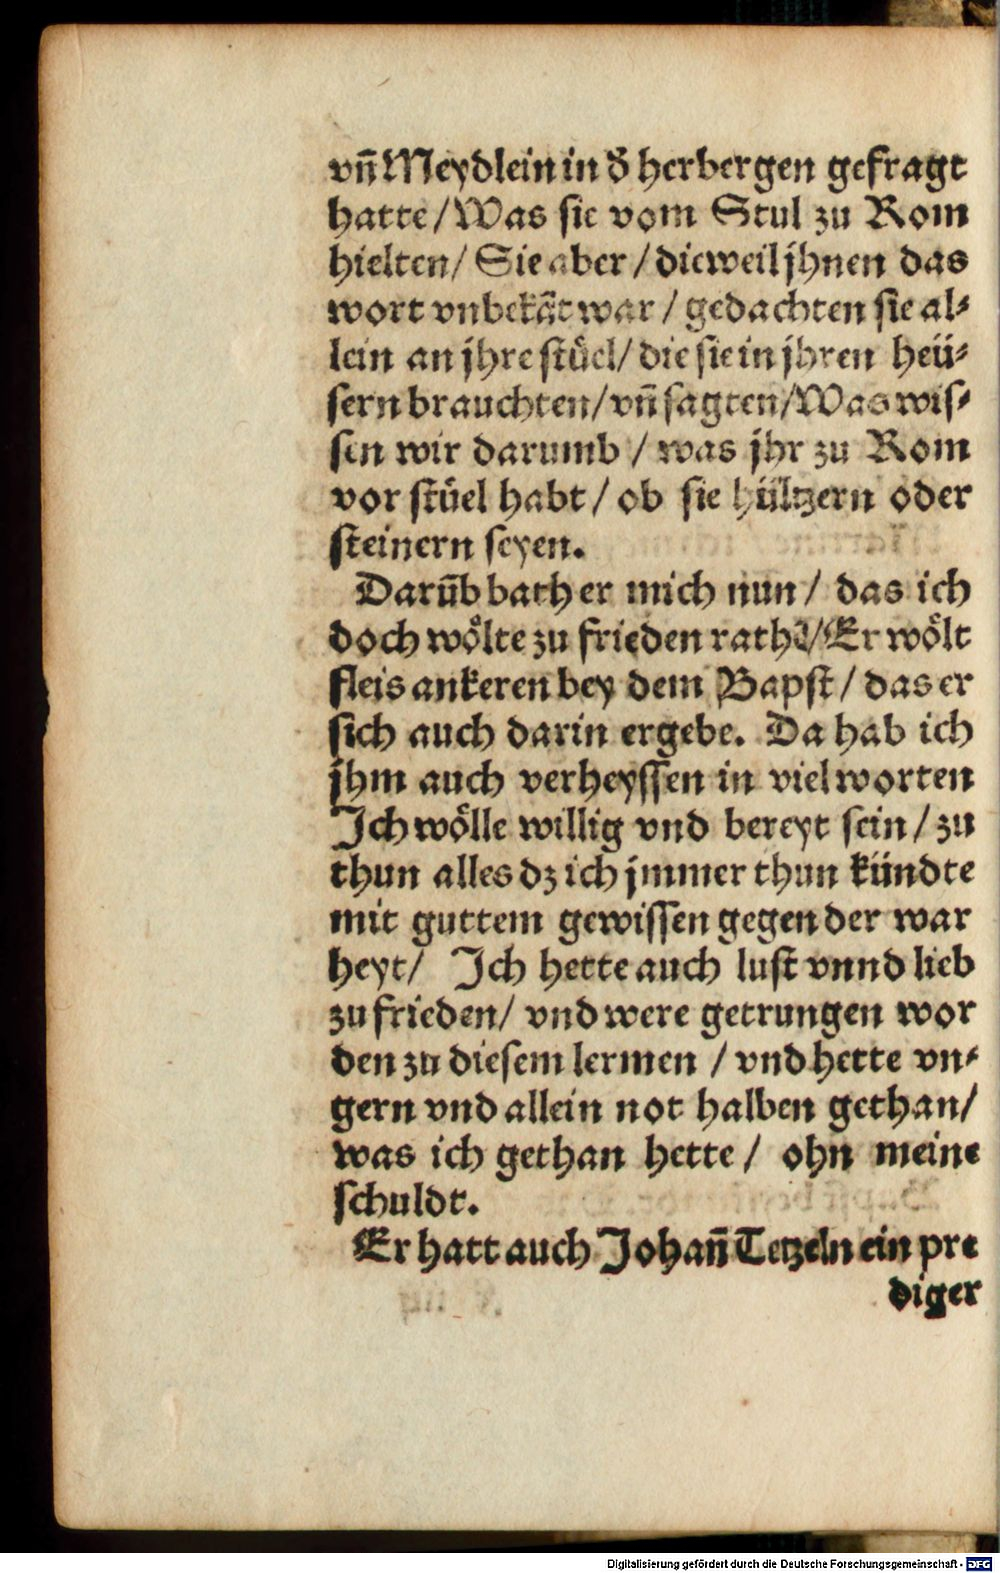 vñ Meydlein in d̕ herbergen gefragt
hatte / Was sie vom Stul zu Rom
hielten / Sie aber / dieweil jhnen das
wort vnbekãt war / gedachten sie al⸗
lein an jhre stüel / die sie in jhren heü⸗
sern brauchten / vñ sagten / Was wis⸗
sen wir darumb / was jhr zu Rom
vor stüel habt / ob sie hültzern oder
steinern seyen.
Darũb bath er mich nun / das ich
doch wölte zu frieden rathẽ / Er wölt
fleis ankeren bey dem Bapst / das er
sich auch darin ergebe. Da hab ich
jhm auch verheyssen in viel worten
Ich wölle willig vnd bereyt sein / zu
thun alles dz ich jmmer thun kündte
mit guttem gewissen gegen der war
heyt / Ich hette auch lust vnnd lieb
zu frieden / vnd were getrungen wor
den zu diesem lermen / vnd hette vn⸗
gern vnd allein not halben gethan /
was ich gethan hette / ohn meine
schuldt.
Er hatt auch Johañ Tetzeln ein pre
diger
Digitalisierung gefördert durch die Deutsche Forschungsgemeinschaft - DFG